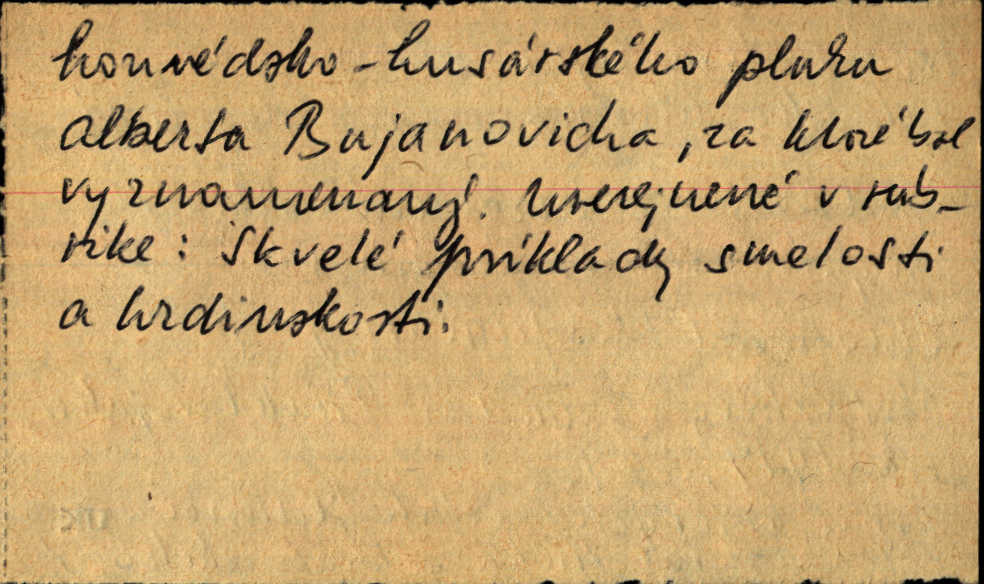 honvédsko-husárskeho pluku
alberta Bujanovicha, za ktoré bol
vyznamenaný. Uverejnené v rub-
rike: Skvelé príklady smelosti
a hrdinskosti.